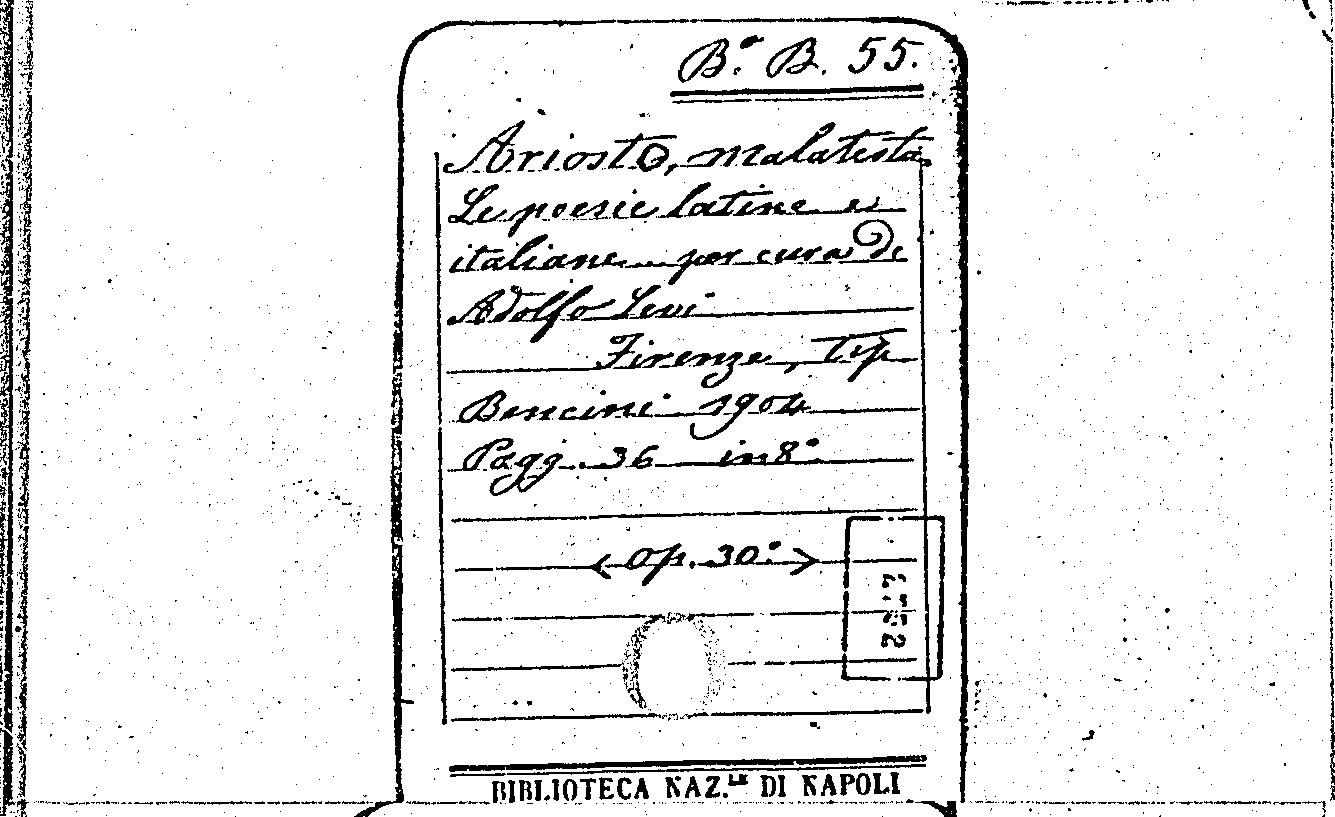 Bª. B. 55.
Ariosto, Malatesta.
Le poesie latine e
italiane per cura di
Adolfo Levi
Firenze, Tip
Bencini 1904
Pagg. 36 in 8º
Op. 30ª
BIBLIOTECA NAZ.LE DI NAPOLI